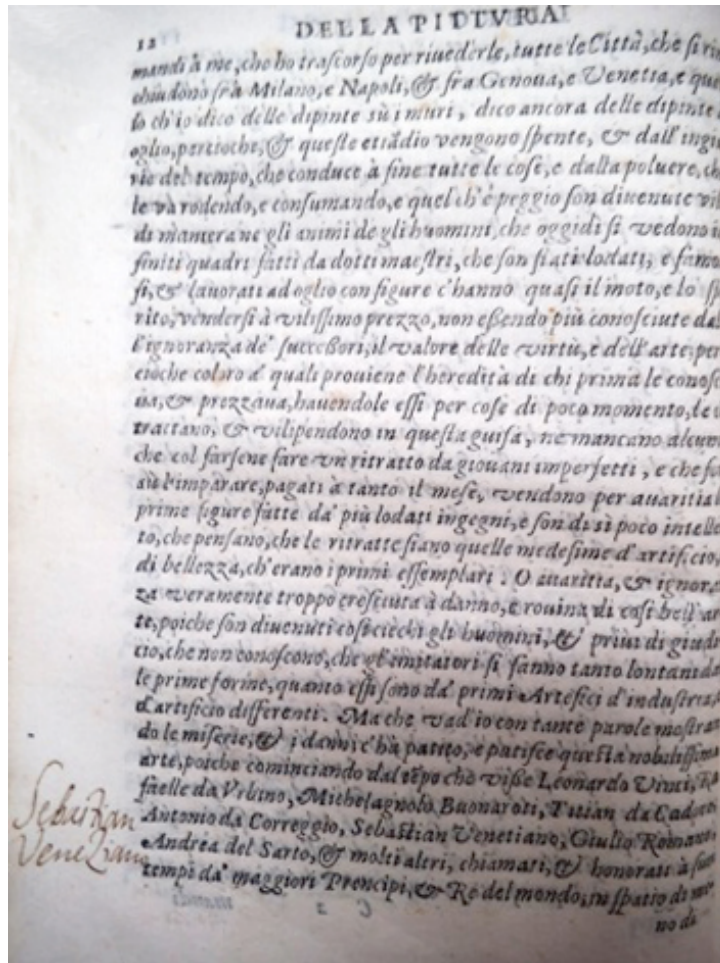 12
DELLA PITTVRA
mandi à me, che ho trascorso per riuederle, tutte le Città, che si
chiudono frà Milano, e Napoli, & fra Genoua, e Venetia, e
lo ch'io dico delle dipinte sù i muri, dico ancora delle dipinte
oglio, percioche, & queste etiādio vengono spente, & dall'
rie del tempo, che conduce à fine tutte le cose, e dalla poluere,
le va rodendo, e consumando, e quel ch'è peggio son diuenute
di maniera ne gli animi de gli huomini, che oggidi si vedono
finiti quadri fatti da dotti maestri, che son stati lodati, e
si, & lauorati ad oglio con figure c'hanno quasi il moto, e lo
rito, vendersi à vilissimo prezzo, non essendo più conosciute
l'ignoranza de' successori, il valore delle virtù, e dell'arte,
cioche coloro a' quali prouiene l'heredità di chi prima le
ua, & prezzaua, hauendole essi per cose di poco momento,
trattano, & vilipendono in questa guisa, ne mancano
che col farsene fare vn ritratto da giouani imperfetti, e che
sù l'imparare, pagati à tanto il mese, vendono per auaritia
prime figure fatte da' più lodati ingegni, e son di sì poco
to, che pensano, che le ritratte siano quelle medesime d'artificio,
di bellezza, ch'erano i primi essemplari. O auaritia, &
za veramente troppo cresciuta à danno, e rouina di così bell'
te, poiche son diuenuti così ciechi gli huomini, & priui di
cio, che non conoscono, che gl'imitatori si fanno tanto lontani
le prime forme, quanto essi sono da' primi Artefici d'industria,
d'artificio differenti. Ma che vad'io con tante parole
do le miserie, & i danni c'ha patito, e patisce questa nobilissima
arte, poiche cominciando dal tēpo che visse Leonardo Vinci,
faelle da Vrbino, Michelagnolo Buonaroti, Titian da Cadoro,
Antonio da Correggio, Sebastian Venetiano, Giulio Romano
Andrea del Sarto, & molti altri, chiamati, & honorati à
tempi da' maggiori Prencipi, & Re del mondo, in spatio di
no di
Sebastian
Veneziano